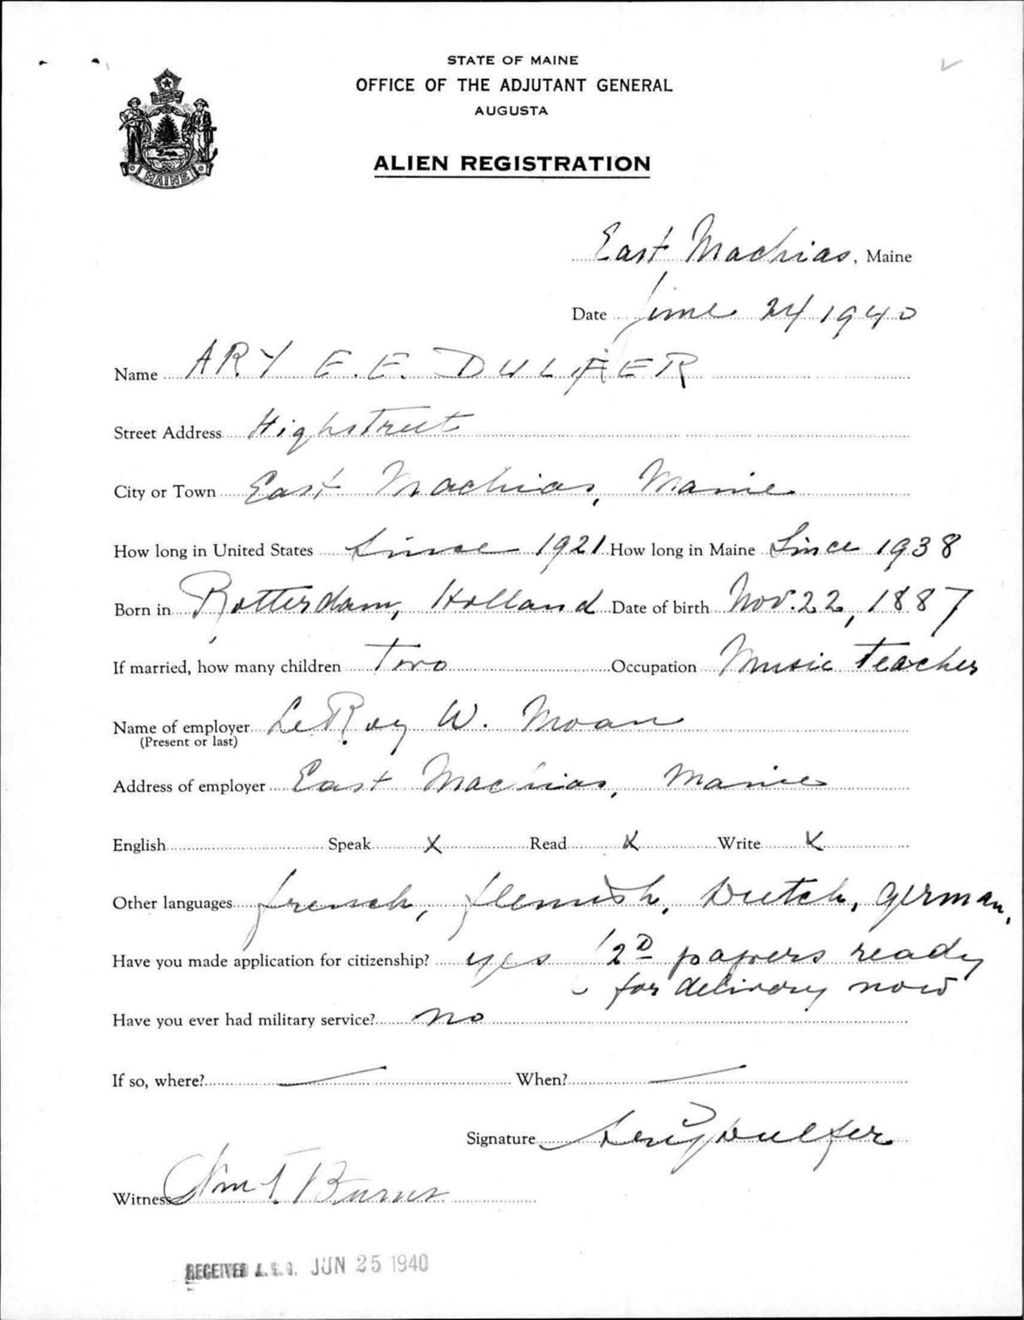 STATE OF MAINE
OFFICE OF THE ADJUTANT GENERAL
AUGUSTA
ALIEN REGISTRATION
MAINE
East Machias, Maine
Date June 24 1940
Name ARY E. E. DULFER
Street Address Highstreet
City or Town East Machias, Maine
How long in United States Since 1921 How long in Maine Since 1938
Born in Rotterdam, Holland Date of birth Nov. 22, 1887
If married, how many children Two Occupation Music teacher
Name of employer LeRoy W. Moan
(Present or last)
Address of employer East Machias, Maine
English Speak X Read X Write X
Other languages french, flemish, Dutch, German,
Have you made application for citizenship? yes 2D papers ready
for delivery now
Have you ever had military service? no
If so, where? When?
Signature Dulfer
Witness Wm Burns
RECEIVED A.G.O. JUN 25 1940